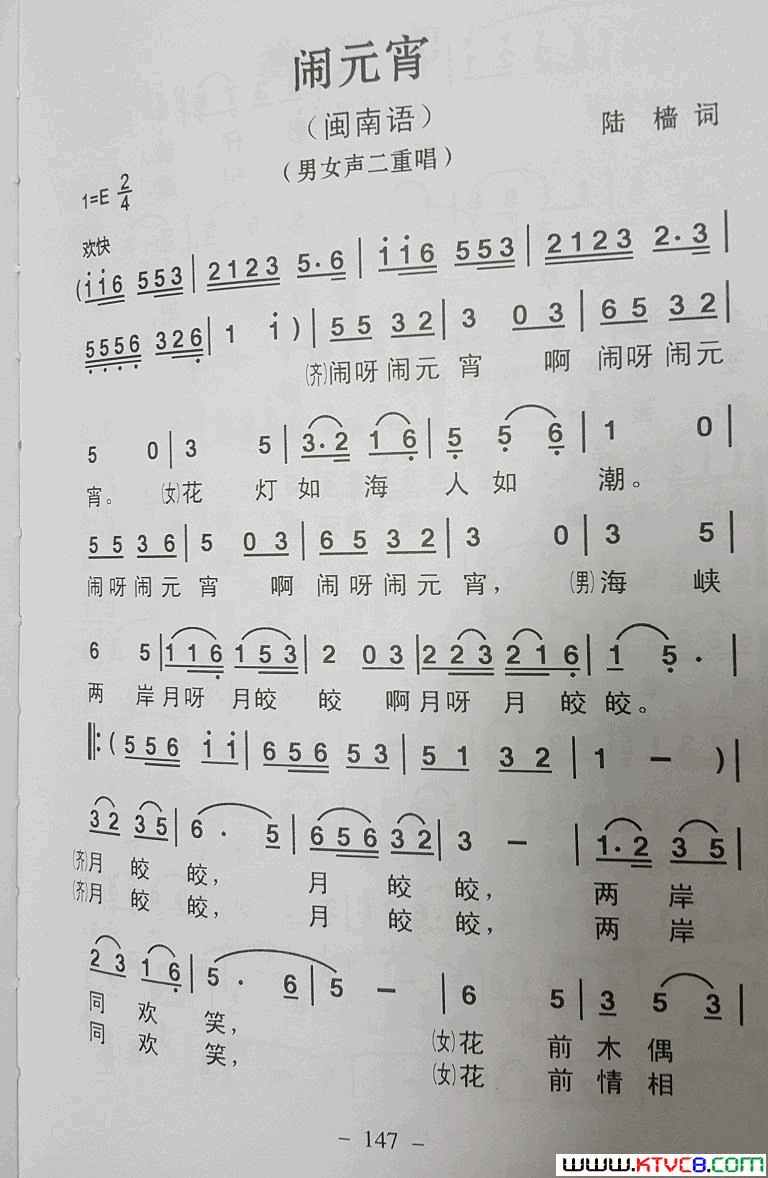 闹元宵
（闽南语）
陆樯词
（男女声二重唱）
1=E 2/4
欢快
(i i 6 5 5 3 | 2 1 2 3 5· 6 | i i 6 5 5 3 | 2 1 2 3 2· 3 |
5 5 5 6 3 2 6 | 1 i ) | 5 5 3 2 | 3 0 3 | 6 5 3 2 |
(齐)闹呀 闹元 宵 啊 闹呀 闹元
5 0 | 3 5 | 3· 2 1 6 | 5 5 6 | 1 0 |
宵。 (女)花 灯 如 海 人 如 潮。
5 5 3 6 | 5 0 3 | 6 5 3 2 | 3 0 | 3 5 |
闹呀闹元 宵 啊 闹呀闹元 宵， (男)海 峡
6 5 | 1 1 6 1 5 3 | 2 0 3 | 2 2 3 2 1 6 | 1 5· |
两 岸月呀 月皎 皎 啊月呀 月 皎 皎。
‖: ( 5 5 6 i i | 6 5 6 5 3 | 5 1 3 2 | 1 — ) |
3 2 3 5 | 6 · 5 | 6 5 6 3 2 | 3 — | 1· 2 3 5 |
(齐)月 皎 皎， 月 皎 皎， 两 岸
(齐)月 皎 皎， 月 皎 皎， 两 岸
2 3 1 6 | 5 · 6 | 5 — | 6 5 | 3 5 3 |
同 欢 笑， (女)花 前 木 偶
同 欢 笑， (女)花 前 情 相
- 147 -
www.KTVC8.com